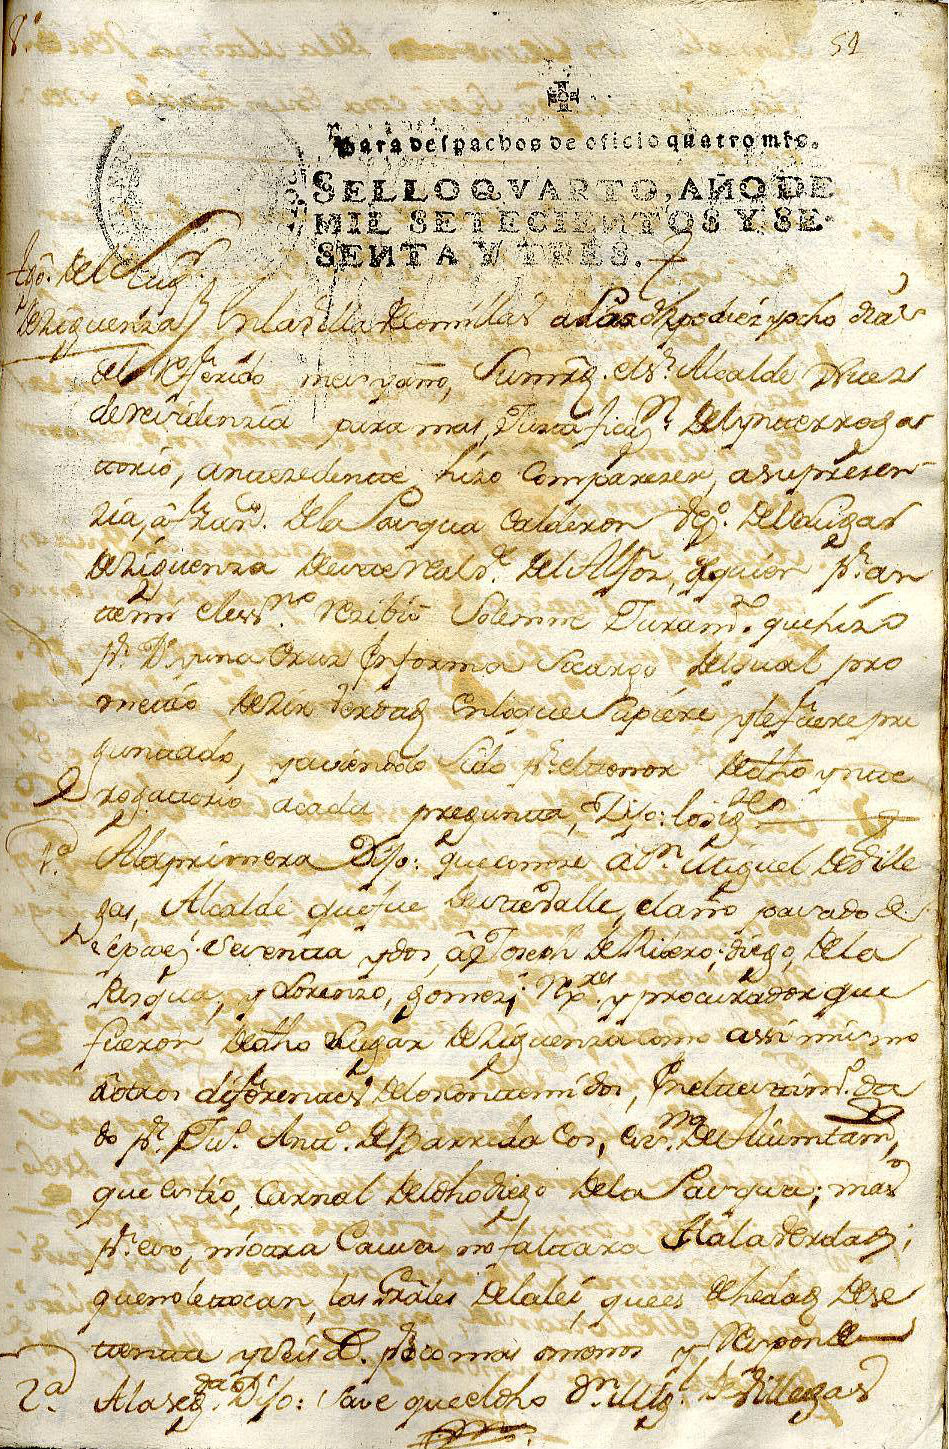 8.
59
Para despachos de oficio quatro mrs.
SELLO QVARTO, AÑO DE
MIL SETECIENTOS Y SE-
SENTA Y TRES.
tgo. del Lugr.
de Ziguenza
En la Villa de Comillas a diez y ocho dias
del Referido mes y año, Su mrd. el Sr. Alcalde Juez
de residenzia para mas Justificazn. del ynterroga
torio, antezedente hizo Comparezer, a su presen-
zia, a franco. de la Pasqua Calderon vezo. del Lugar
de Ziguenza de este real Vae. del Alfoz, de quien pr. an
temi el essno. rezibio Solemne Juramto. que hizo
pr. Ds. y una Cruz en forma So cargo del qual pro
metio dezir Verdad en lo que Supiere y le fuere pre
guntado, y aviendolo Sido pr. el tenor de dho ynte
rogatorio a cada pregunta, Dijo: lo sigte.
1.a A la primera Dijo: que conoze a Dn. Miguel de Ville
gas, Alcalde que fue de este Valle, el año pasado de
Sesenta y dos, a Joseph de Rivero; diego, de la
Pasqua, y Lorenzo, gomez; Rexres. y procurador que
fueron de dho Lugar de Ziguenza como assi mismo
a otros diferentes de los contenidos, en el testimo. da
do pr. Juo. Anto. de Barreda Cos, essno. de Aiuntamto,
que es tio, Carnal del dho diego de la Pasqua; mas
pr. eso, ni otra Causa no faltara A la Verdad;
que no le tocan, las Grales de la lei, que es de hedad de se
tenta y seis as. poco mas o menos y Responde
2.a A la segda. Dijo: Save que el dho Dn. Migl. de Villegas